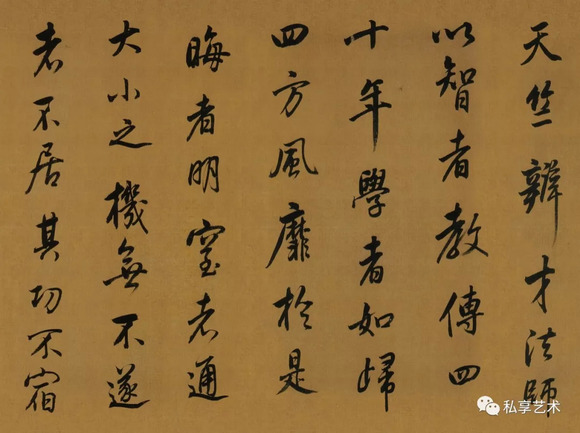 天竺辨才法師
以智者教傳四
十年學者如歸
四方風靡於是
晦者明窒者通
大小之機無不遂
者不居其功不宿
私享艺术